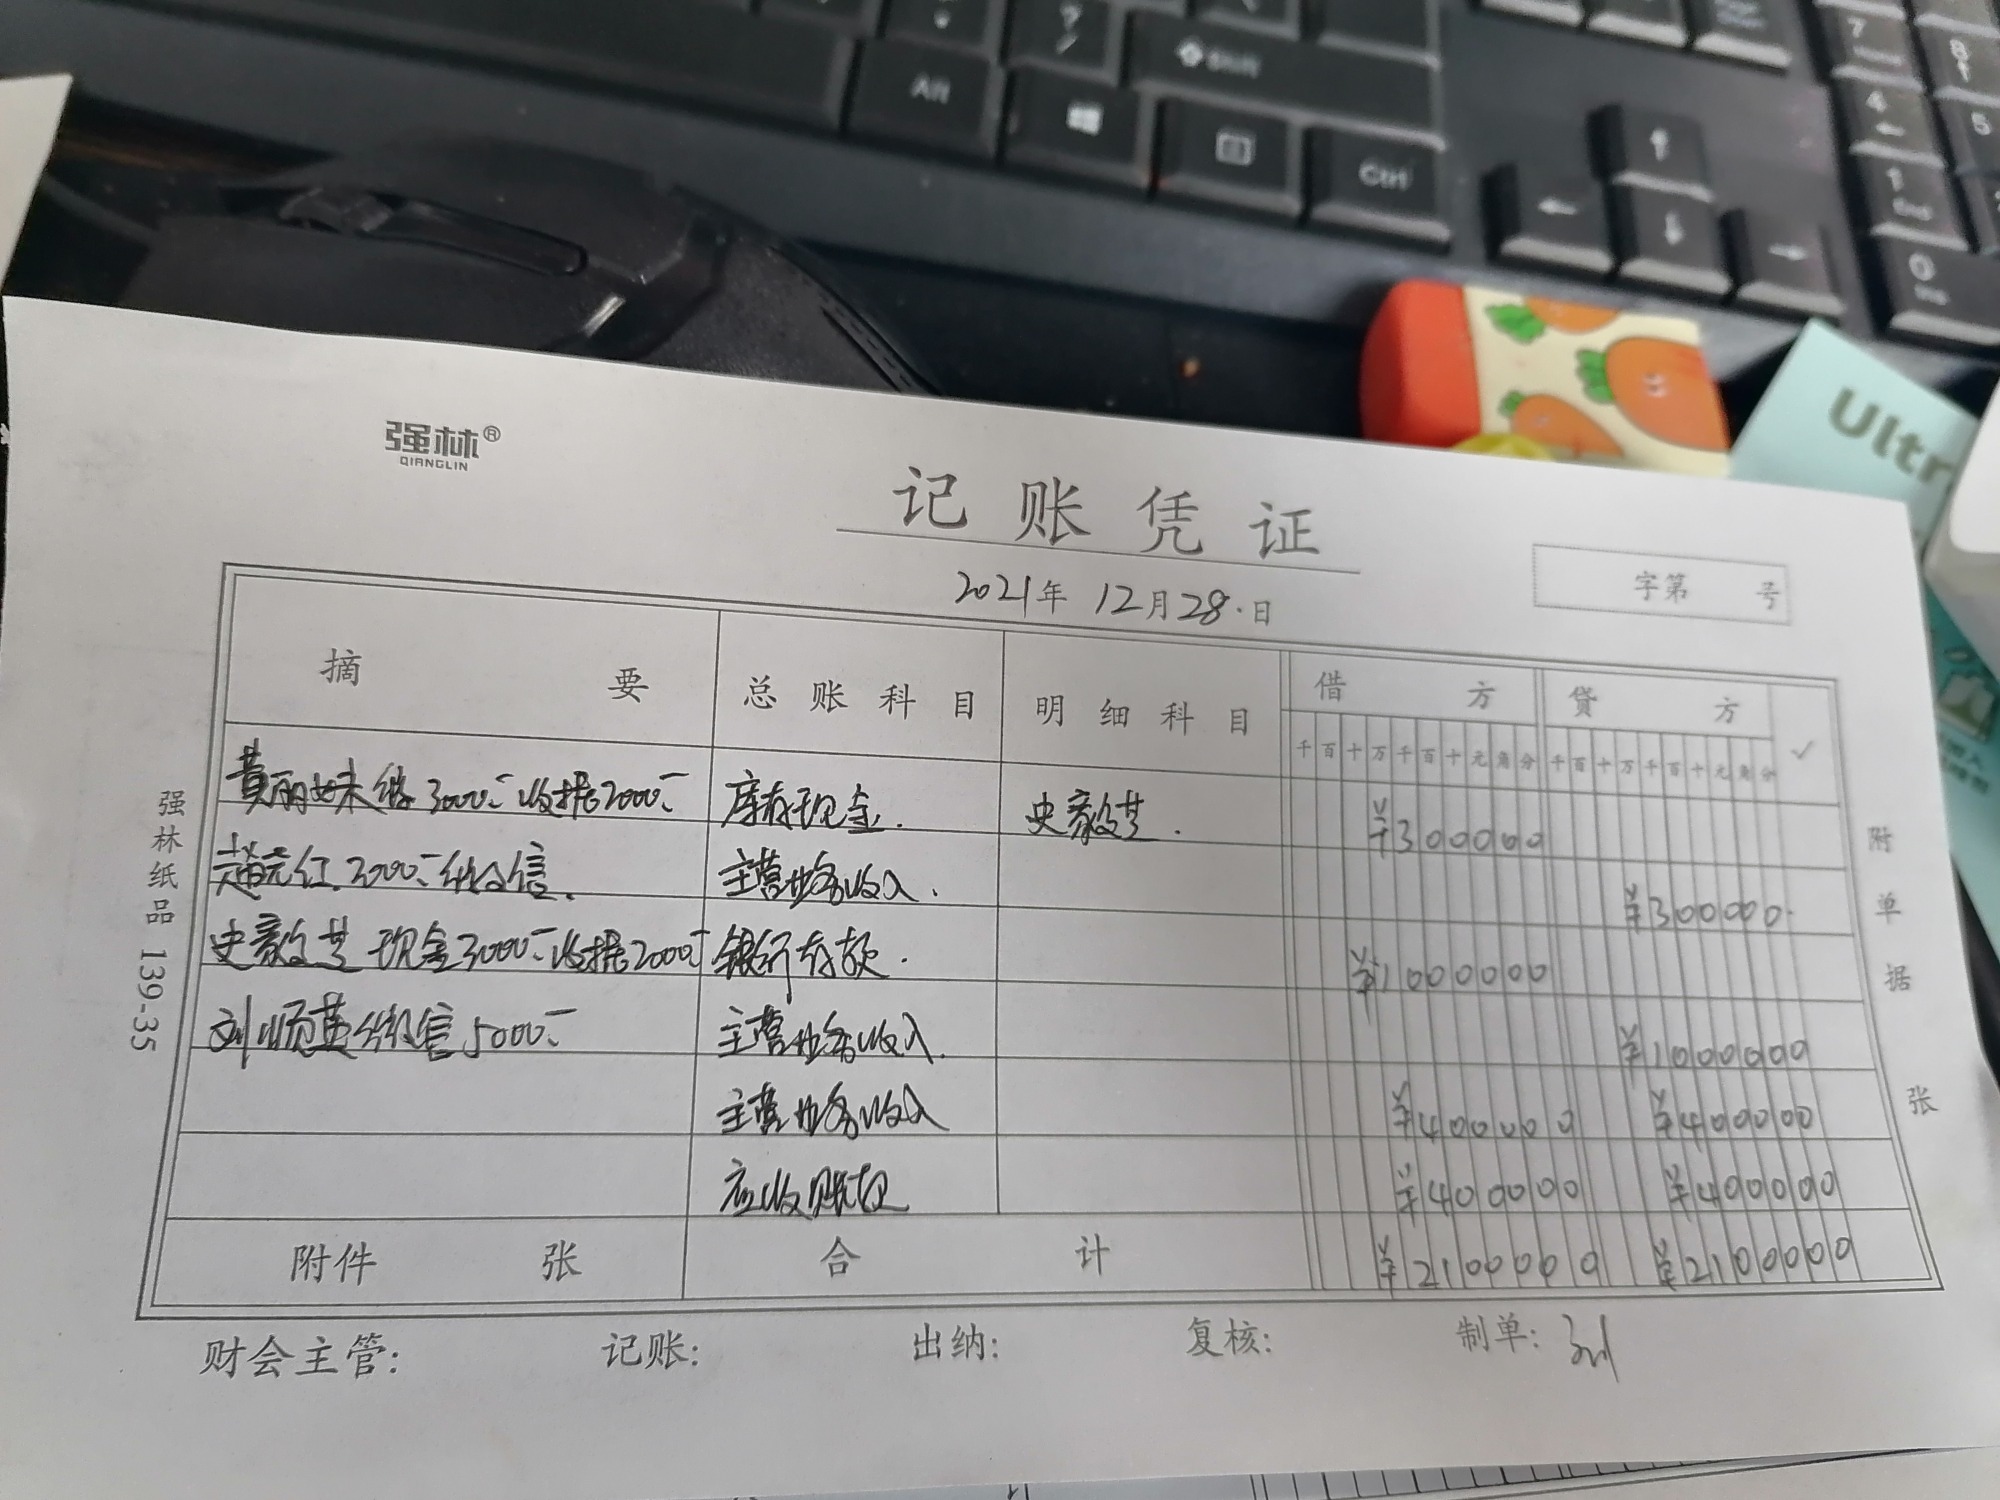 Alt
Shift
Ctrl
7
4
5
1
End
0
Ins
Ultr
强林®
QIANGLIN
记账凭证
2021年 12月28日
字第 号
摘要 总账科目 明细科目 借方 贷方 ✓
千百十万千百十元角分 千百十万千百十元角分
黄丽妹 3000.- 收据2000.- 库存现金. ¥300000
赵元红.2000.- 微信. 主营业务收入. ¥300000
现金3000.- 收据2000.- 银行存款. ¥1000000
刘顺英 微信5000.- 主营业务收入. ¥1000000
主营业务收入 ¥400000 ¥400000
应收账款 ¥400000 ¥400000
附件 张 合计 ¥2100000 ¥2100000
附单据 张
强林纸品 139-35
财会主管: 记账: 出纳: 复核: 制单: 刘